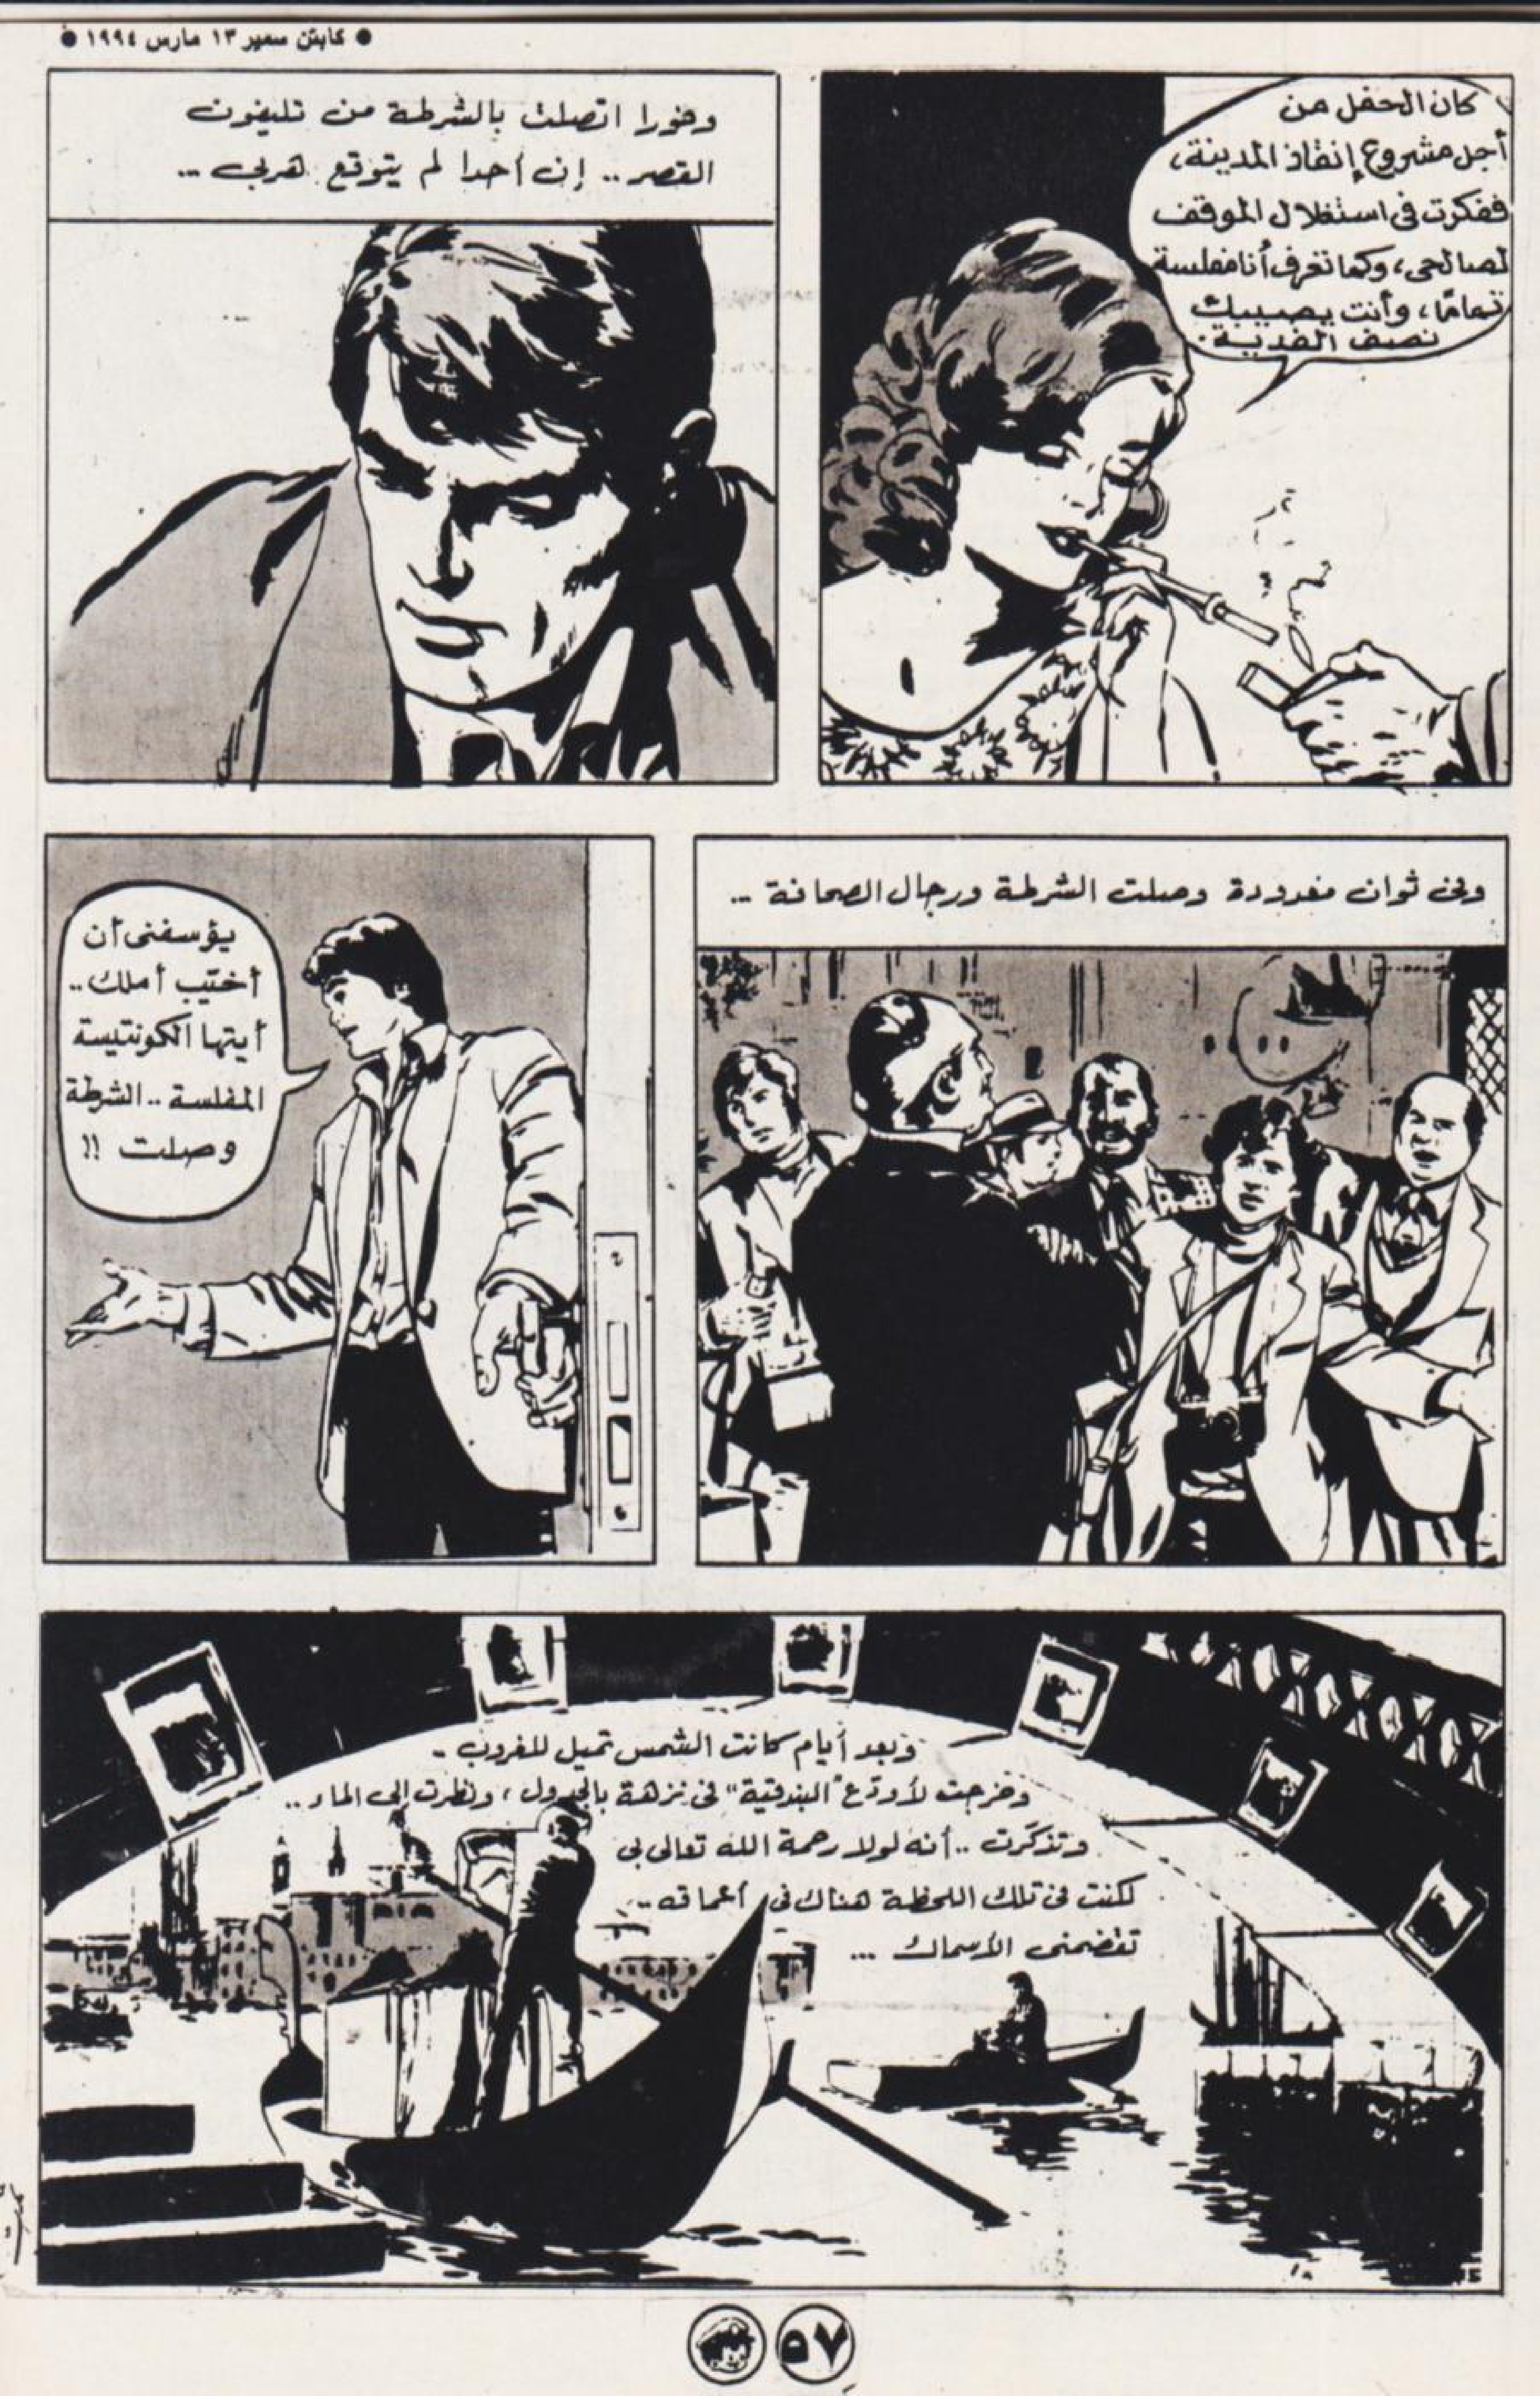 ● كابتن سمير ١٣ مارس ١٩٩٤ ●
كان الحفل من
أجل مشروع إنقاذ المدينة،
ففكرت فى استغلال الموقف
لصالحى، وكما تعرف أنا مفلسة
تمامًا، وأنت يصيبك
نصف الفدية.
وفورا اتصلت بالشرطة من تليفون
القصر.. إن أحدا لم يتوقع هربى ...
وفى ثوان معدودة وصلت الشرطة ورجال الصحافة ...
يؤسفنى أن
أخيّب أملك..
أيتها الكونتيسة
المفلسة.. الشرطة
وصلت !!
وبعد أيام كانت الشمس تميل للغروب -
وخرجت لأودّع "البندقية" فى نزهة بالجندول، ونظرت إلى الماء..
وتذكّرت.. أنه لولا رحمة الله تعالى بى
لكنت فى تلك اللحظة هناك فى أعماقه...
تقضمنى الأسماك ...
٥٧